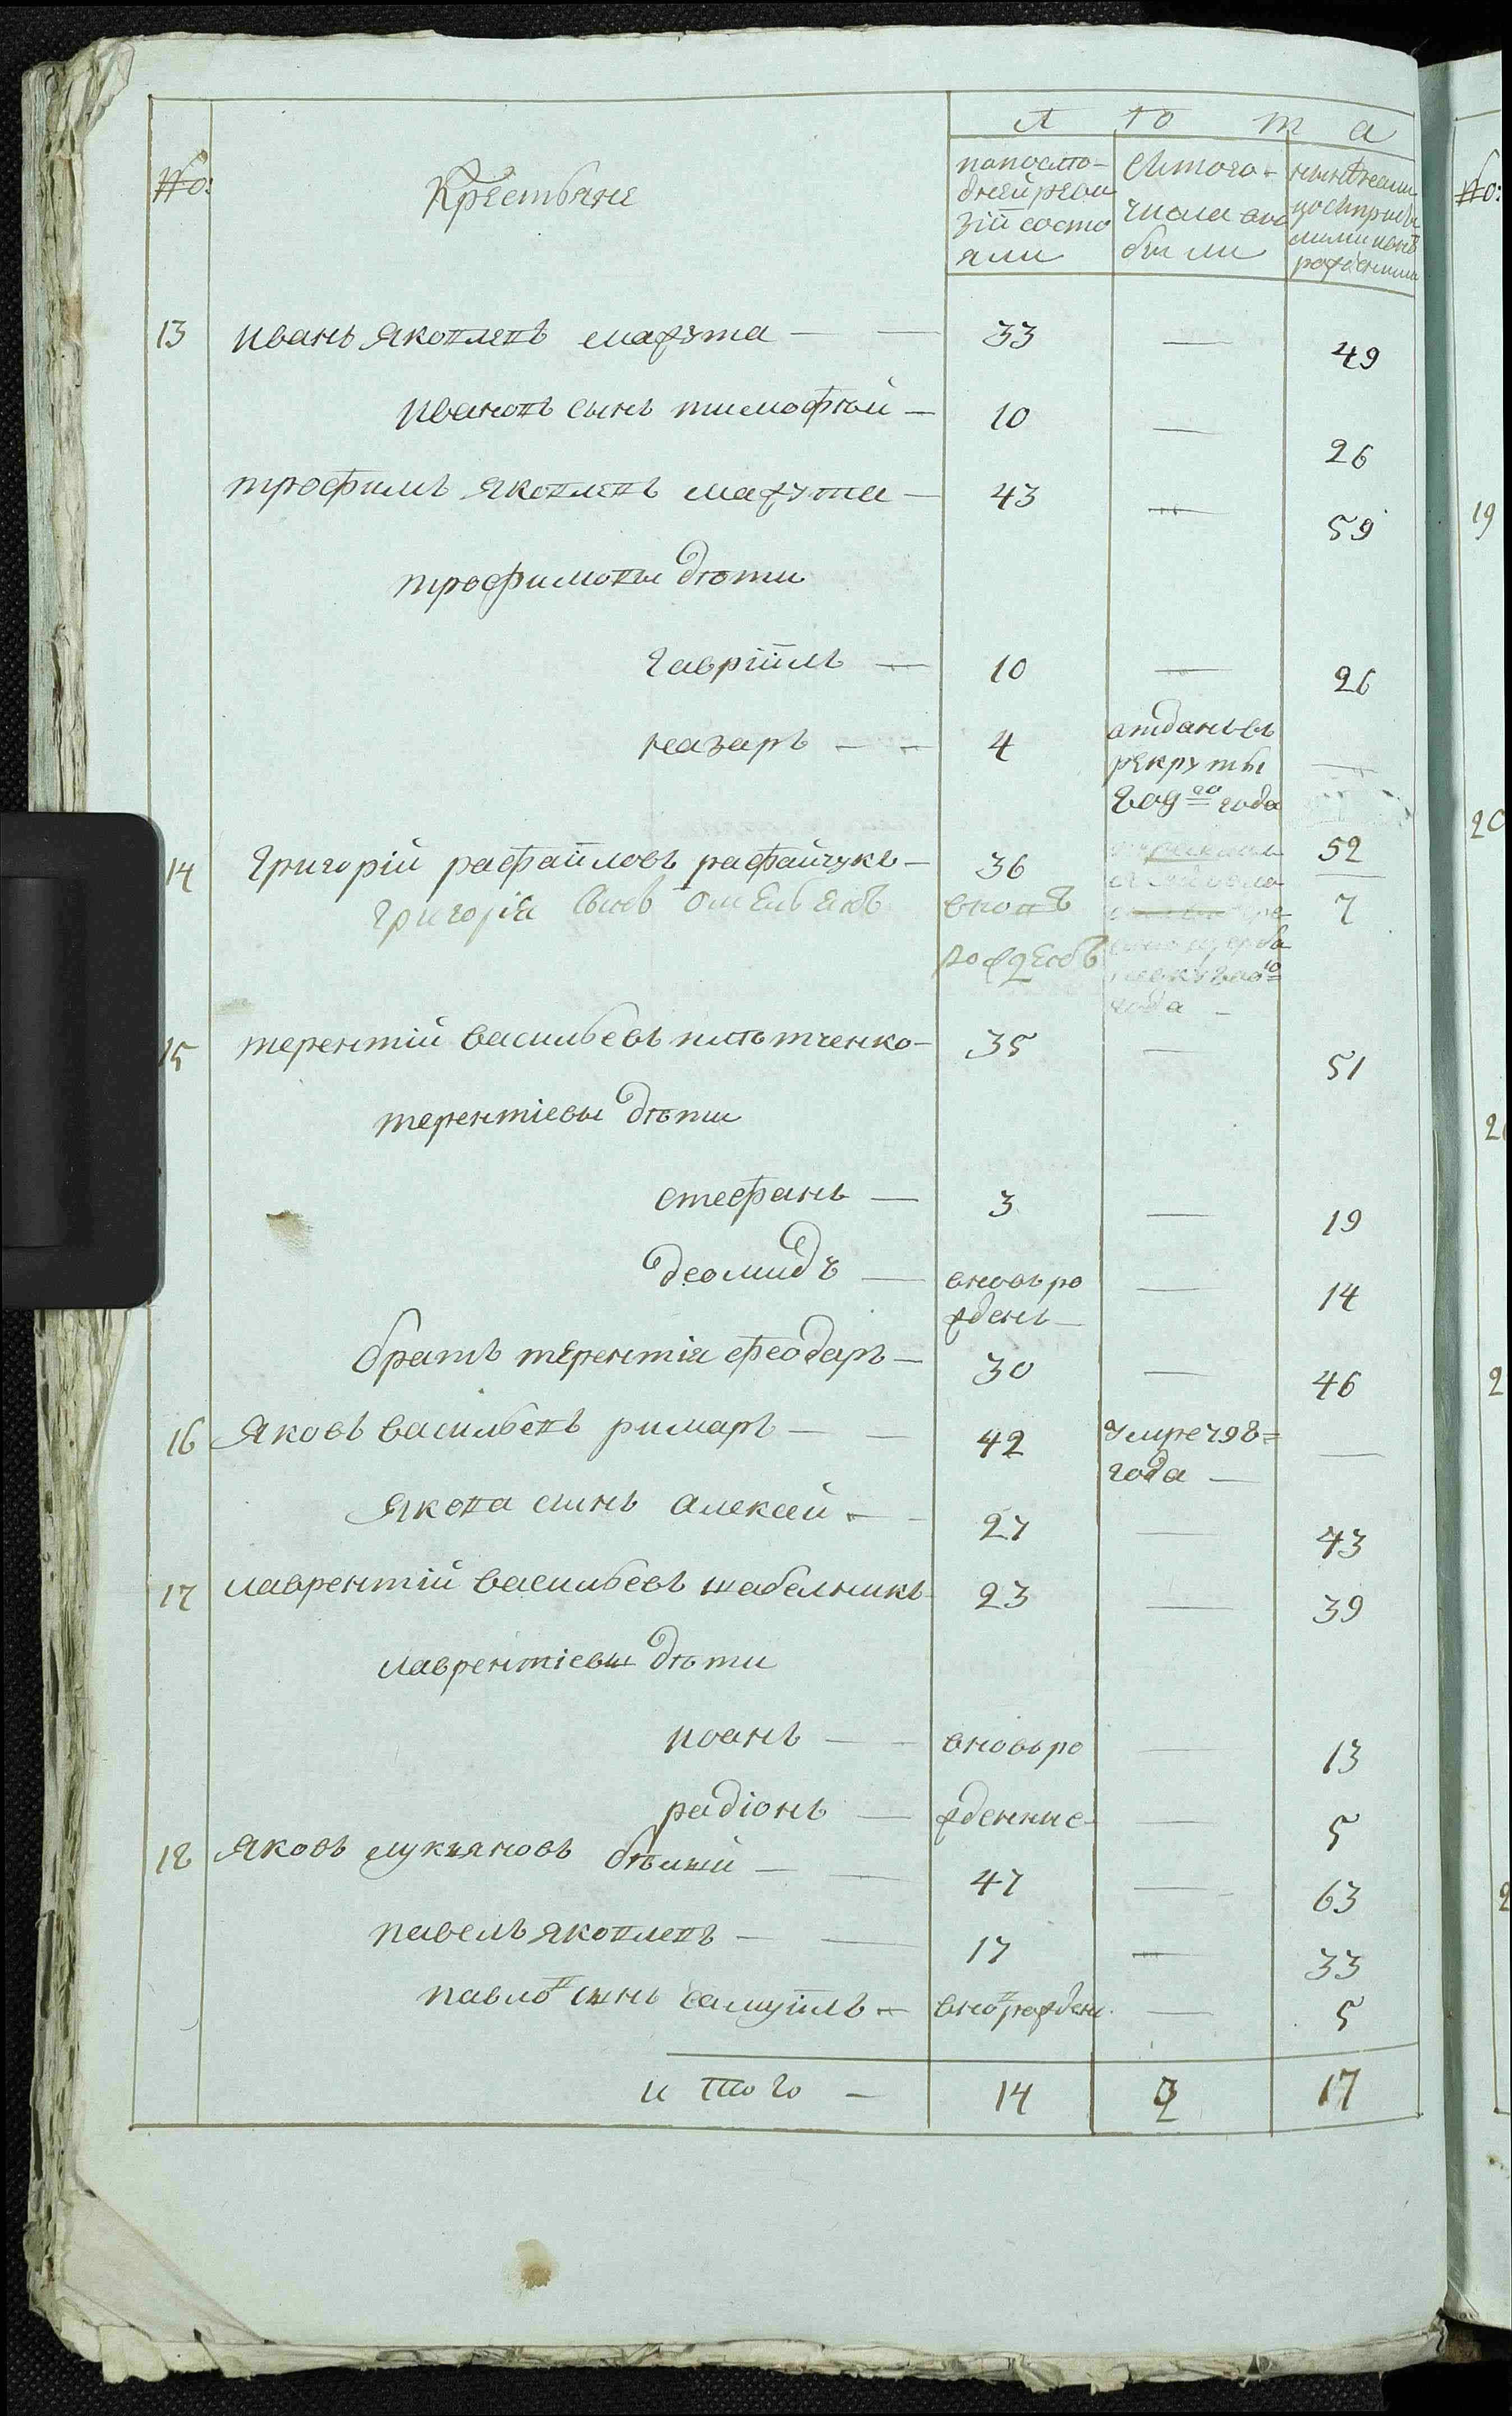 №:
Крестьяне
лѣта
по последней ревизіи состояли
Изъ того числа выбыли
13 иванъ яковлевъ мажута — 33 — 49
ивановъ сынъ тимофѣй — 10 — 26
трофимъ яковлевъ мажута — 43 — 59
трофимовы дѣти
гавріилъ — 10 — 26
назаръ — 4 отданъ въ рекруты года —
14 григорій рафаиловъ рафайчукъ — 36 52
григорія сынъ омельянъ вновъ рожденъ 7
года —
15 терентій васильевъ плѣтченко — 35 — 51
терентіевы дѣти
стефанъ — 3 — 19
деомидъ — вновь рожденъ — 14
братъ терентія феодаръ — 30 — 46
16 яковъ васильевъ римаръ — 42 умре 798 года — —
якова сынъ алексей — 27 — 43
17 лаврентій васильевъ шабелникъ 23 — 39
лаврентіевы дѣти
иванъ — вновь ро — 13
радіонъ — жденные — 5
18 яковъ лукяновъ бѣлый — 47 — 63
павелъ яковлевъ — 17 — 33
павловъ сынъ самуилъ — внов рожден. — 5
итого — 14 2 17
№:
19
20